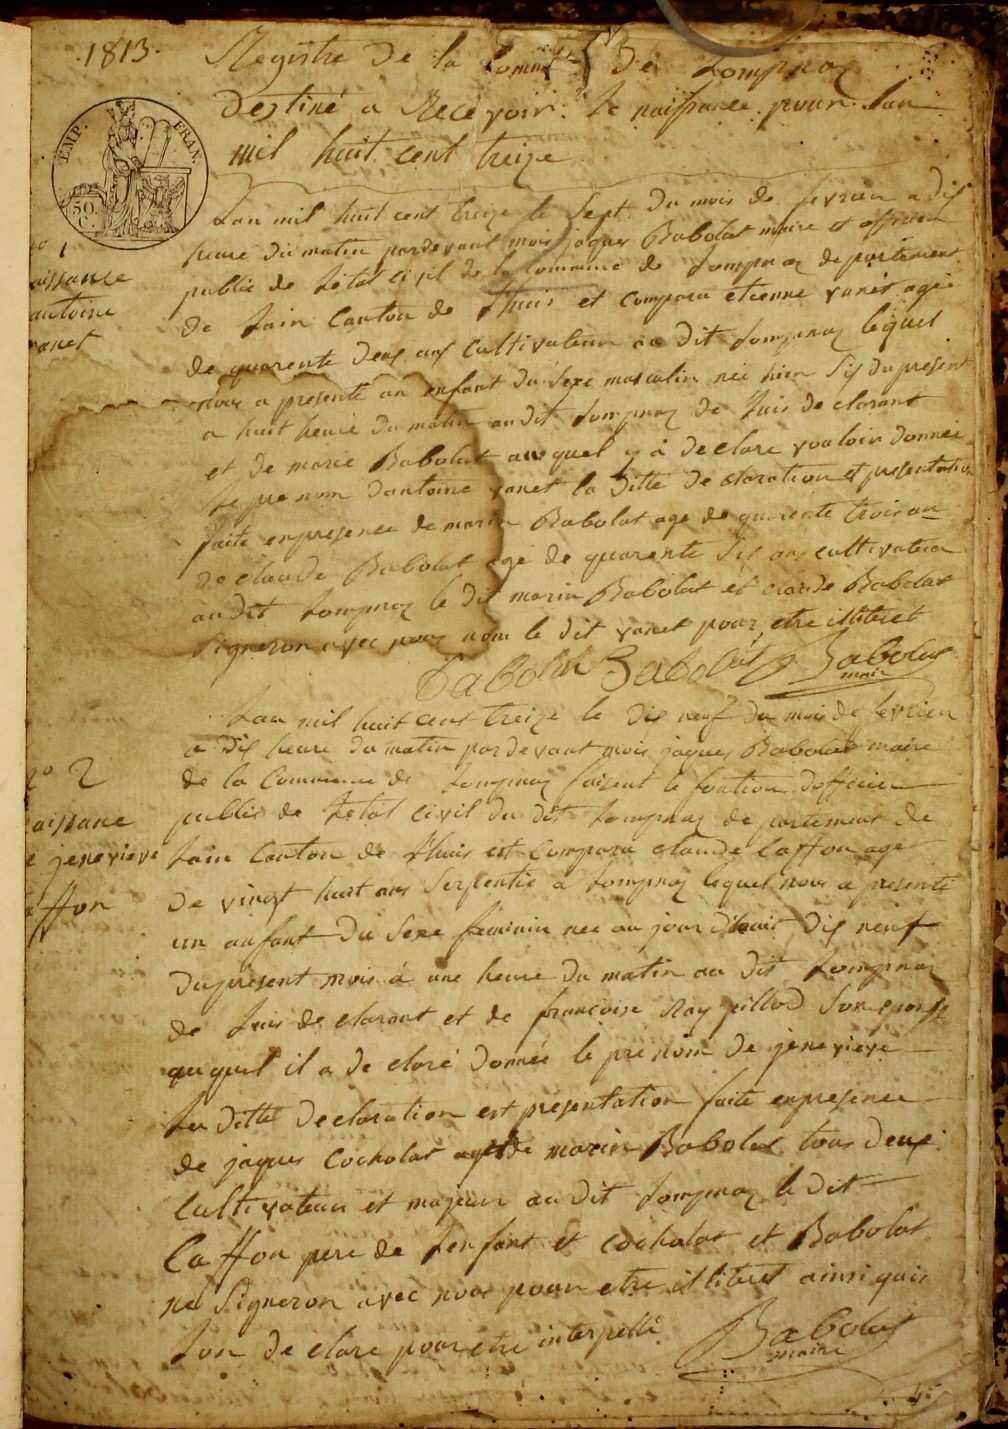 1813.
Registre de la Comm de Lompnaz
destiné a Recevoir le naissance pour lan
mil huit cent treize
EMP. FRAN.
50 C.
1
aissance
antoine
anet
Lan mil huit cent treize le sept du mois de fevrier a dis
heure du matin pardevant mois jaques Babolat maire et officier
public de létat civil de la commune de Lompnaz departement
de Lain Canton de Lhuis et compara etienne vanet agé
de quarente deus ans cultivateur au dit Lompnaz lequel
nous a presenté un enfant du sexe masculin née hier sis du present
a huit heure du matin audit Lompnaz de luis declarant
et de marie Babolat auquel y à declare vouloir donner
le prenom dantoine vanet la ditte declaration et presentation
faite enpresence de marin Babolat age de quarente trois an
de claude Babolat agé de quarente sis ans cultivateur
audit Lompnaz le dit marin Babolat et claude Babolat
signeron avec nous non le dit vanet pour etre illiteret
Babolat Babolat Babolat
maire
Lan mil huit cent treize le dis neuf du mois de fevrier
a dis heure du matin pardevant mois jaques Babolat maire
de la Commune de Lompnaz faisent le fontion dofficier
public de letat civil du dit Lompnaz departement de
Lain Canton de Lhuis est compara claude Caffon age
de vingt huit ans Serpentié a Lompnaz lequel nous a presenté
un anfant du sexe feminin nee au jour dhuit dis neuf
du present mois à une heure du matin au dit Lompnaz
de luis declarant et de françoise Ray pillod son epouse
auquel il a declaré donnée le prenom de jenevieve
La ditte declaration est presentation faite enpresence
de jaques Cocholat et de marin Babolat tous deus
Cultivateur et majeur au dit Lompnaz le dit
Caffon pere de lenfant et cocholat et Babolat
ne signeron avec nous pour etre illiteret ainsi quis
lon declare pour etre interpellé
Babolat
maire
2
aissane
e jenevieve
ffon